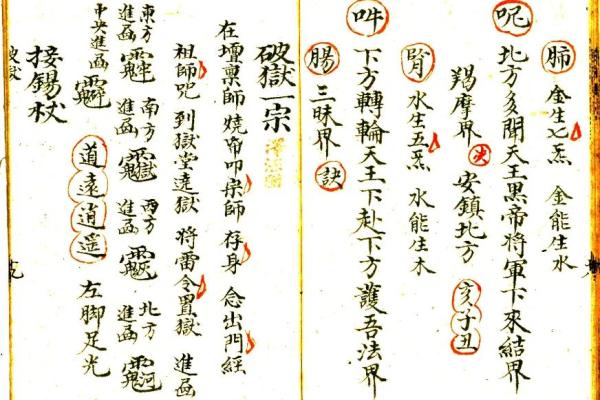 肺 金生七炁 金能生水
呢 北方多聞天王黑帝將軍下來結界
羯摩界 決 安鎮北方 亥子丑
腎 水生五炁 水能生木
吽 下方轉輪天王下赴下方護吾法界
腸 三昧界 訣
破獄一宗
在壇禀師燒帛叩宗師 存身 念出門經
祖師咒 到獄堂遶獄 將雷令置獄 進函
東方進函 南方進函 西方進函 北方進函
中央進函 道遠逍遥 左脚足光
接錫杖